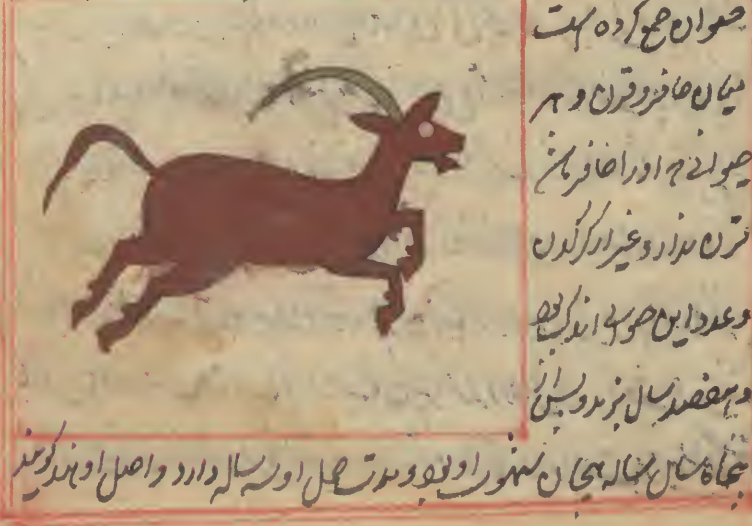 حیوان جمع کرده است
میان حافر و قرن و هر
حیوانی که او را حافر باشد
قرن ندارد و غیر از کرکدن
و عدد این حیوان اندک بود
و هفتصد سال بزید و پس از
پنجاه سال هیجان شهوت او بود و مدت حمل او سه سال دارد و اصل او هند گویند